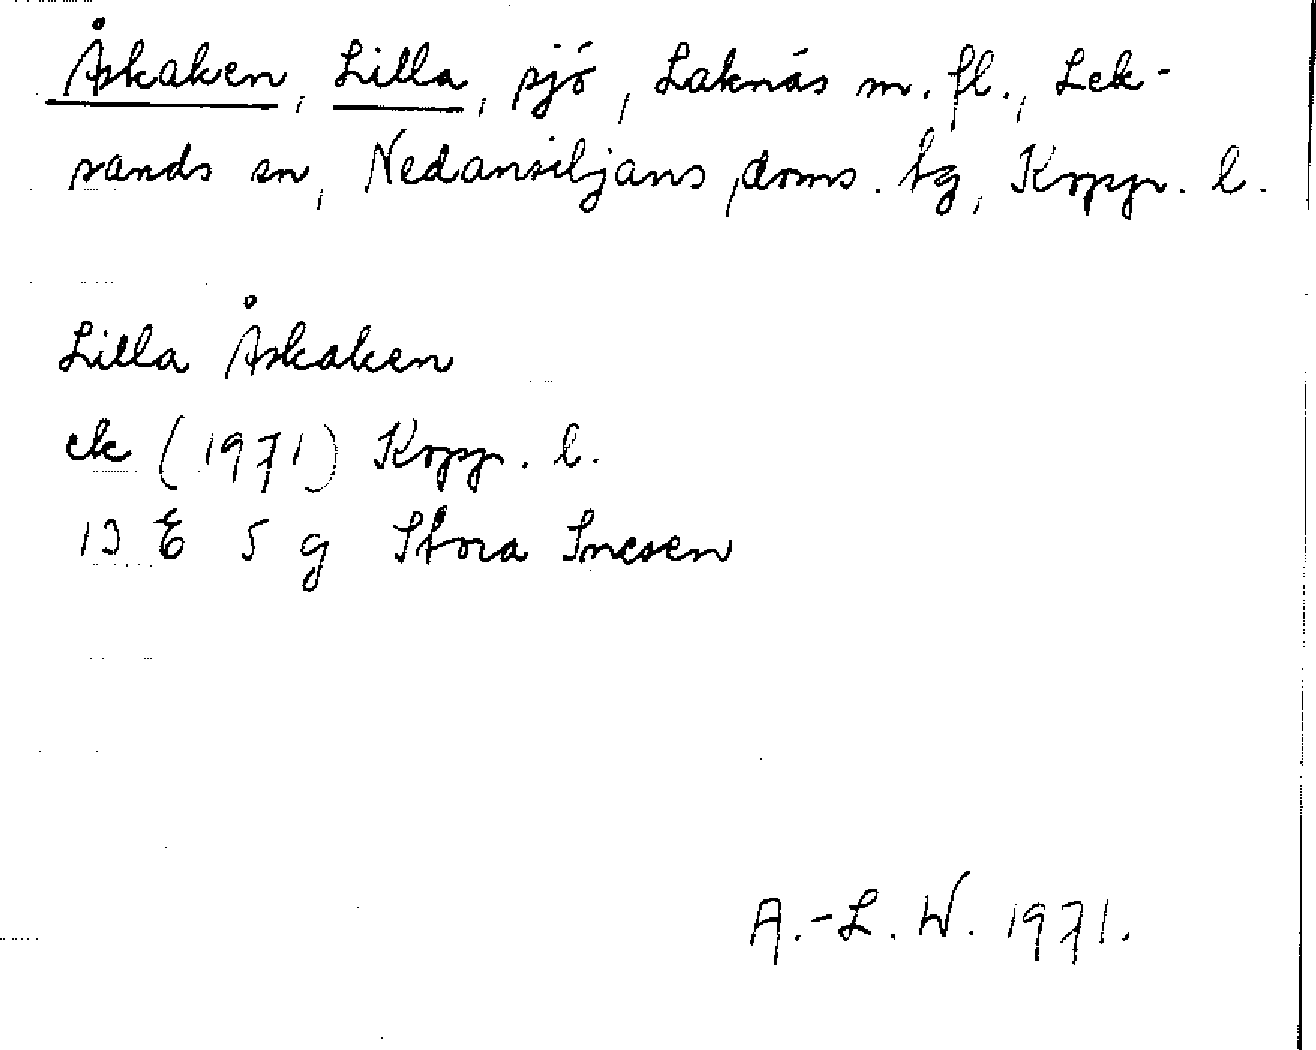 Åskaken, Lilla, sjö, Laknäs m. fl., Lek-
sands sn, Nedansiljans doms. tg, Kopp. l.
Lilla Åskaken
ek (1971) Kopp. l.
13 E 5 g Stora Snesen
A.-L. W. 1971.